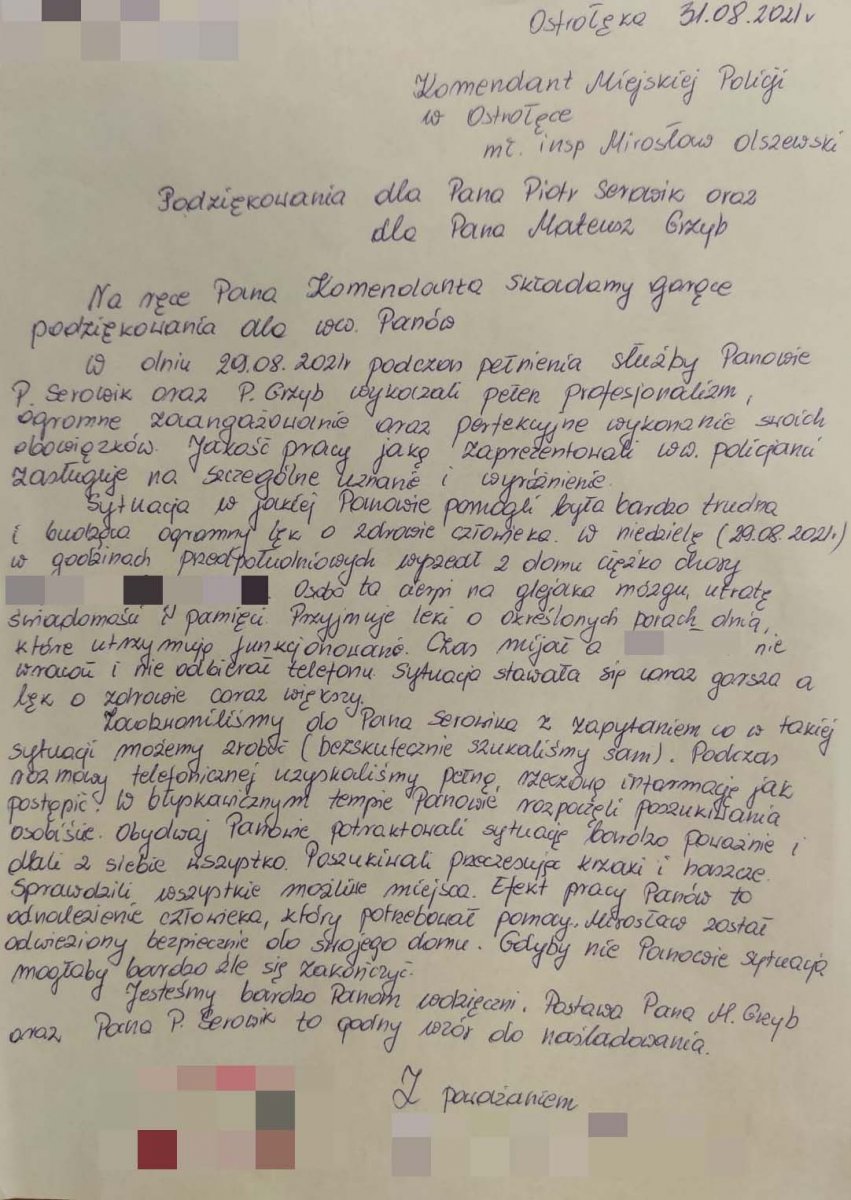 Ostrołęka 31.08.2021r
Komendant Miejskiej Policji
w Ostrołęce
mł. insp Mirosław Olszewski
Podziękowania dla Pana Piotr Serowik oraz
dla Pana Mateusz Grzyb
Na ręce Pana Komendanta składamy gorące
podziękowania dla ww. Panów
W dniu 29.08.2021r podczas pełnienia służby Panowie
P. Serowik oraz P. Grzyb wykazali pełen profesjonalizm,
ogromne zaangażowanie oraz perfekcyjne wykonanie swoich
obowiązków. Jakość pracy jaką zaprezentowali ww. policjanci
zasługuje na szczególne uznanie i wyróżnienie.
Sytuacja w jakiej Panowie pomogli była bardzo trudna
i budząca ogromny lęk o zdrowie człowieka. W niedzielę (29.08.2021r)
w godzinach przedpołudniowych wyszedł z domu ciężko chory
. Osoba ta cierpi na glejaka mózgu, utratę
świadomości i pamięci. Przyjmuje leki o określonych porach dnia,
które utrzymują funkcjonowanie. Czas mijał a nie
wracał i nie odbierał telefonu. Sytuacja stawała się coraz gorsza a
lęk o zdrowie coraz większy.
Zadzwoniliśmy do Pana Serowika z zapytaniem co w takiej
sytuacji możemy zrobić (bezskutecznie szukaliśmy sami). Podczas
rozmowy telefonicznej uzyskaliśmy pełną, rzeczową informację jak
postąpić. W błyskawicznym tempie Panowie rozpoczęli poszukiwania
osobiście. Obydwaj Panowie potraktowali sytuację bardzo poważnie i
dali z siebie wszystko. Poszukiwali przeczesując krzaki i haszcze.
Sprawdzili wszystkie możliwe miejsca. Efekt pracy Panów to
odnalezienie człowieka, który potrzebował pomocy. Mirosław został
odwieziony bezpiecznie do swojego domu. Gdyby nie Panowie sytuacja
mogłaby bardzo źle się zakończyć.
Jesteśmy bardzo Panom wdzięczni. Postawa Pana M. Grzyb
oraz Pana P. Serowik to godny wzór do naśladowania.
Z poważaniem